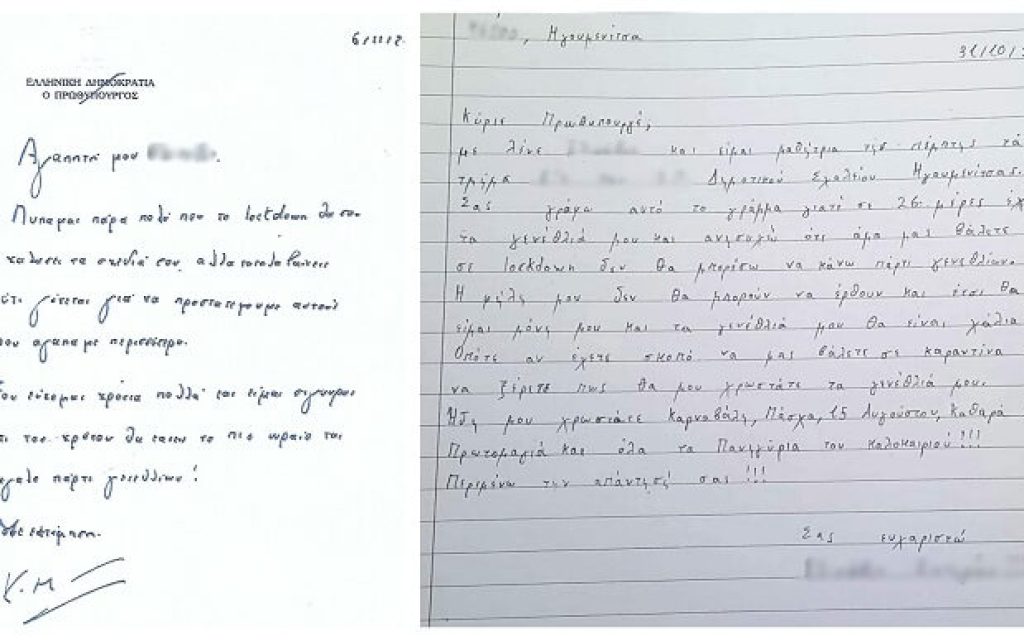 6/11/2
ΕΛΛΗΝΙΚΗ ΔΗΜΟΚΡΑΤΙΑ
Ο ΠΡΩΘΥΠΟΥΡΓΟΣ
Αγαπητή μου
Λυπάμαι πάρα πολύ που το lockdown θα σου
χαλάσει τα σχέδιά σου, αλλά καταλαβαίνεις
ότι γίνεται για να προστατέψουμε αυτούς
που αγαπάμε περισσότερο.
Σου εύχομαι χρόνια πολλά και είμαι σίγουρος
ότι του χρόνου θα κάνεις το πιο ωραίο και
μεγάλο πάρτι γενεθλίων!
Με εκτίμηση.
Κ.Μ
, Ηγουμενίτσα
31/10/
Κύριε Πρωθυπουργέ,
με λένε και είμαι μαθήτρια της πέμπτης τά
τμήμα Δημοτικού Σχολείου Ηγουμενίτσας.
Σας γράφω αυτό το γράμμα γιατί σε 26 μέρες έχ
τα γενέθλιά μου και ανησυχώ ότι άμα μας βάλετε
σε lockdown δεν θα μπορέσω να κάνω πάρτι γενεθλίων.
Η φίλη μου δεν θα μπορούν να έρθουν και έτσι θα
είμαι μόνη μου και τα γενέθλιά μου θα είναι χάλια
Οπότε αν έχετε σκοπό να μας βάλετε σε καραντίνα
να ξέρετε πως θα μου χρωστάτε τα γενέθλιά μου.
Ήδη μου χρωστάτε Καρναβάλι, Πάσχα, 15 Αυγούστου, Καθαρά
Πρωτομαγιά και όλα τα Πανηγύρια του καλοκαιριού!!!
Περιμένω την απάντησή σας!!!
Σας ευχαριστώ